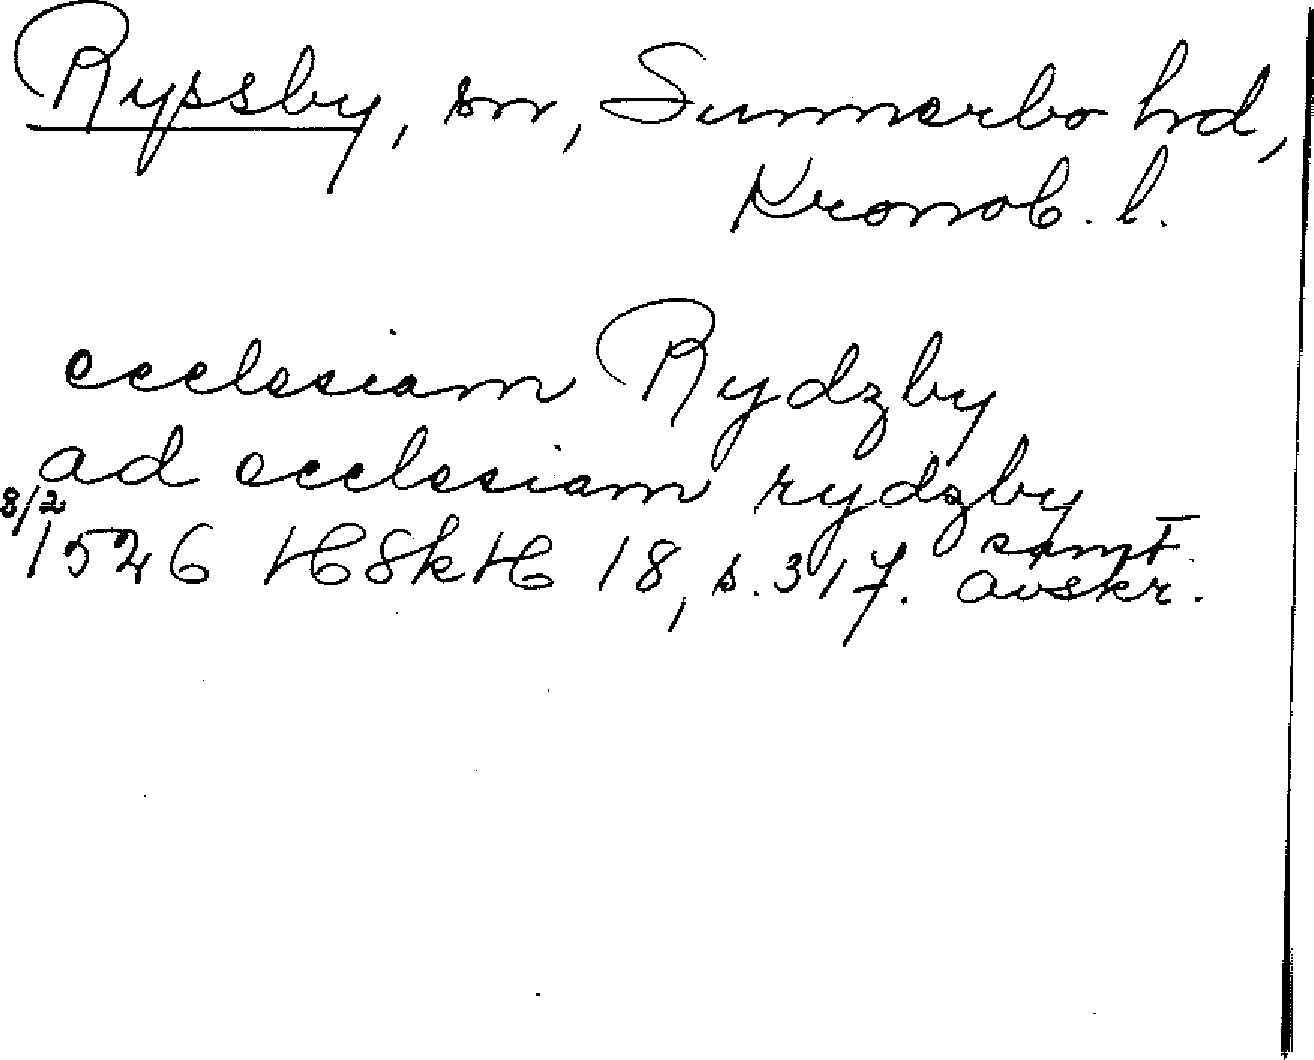 Ryssby, sn, Sunnerbo hd,
Kronob. l.
ecclesiam Rydzby
ad ecclesiam rydzby
8/2 1526 HSkH 18, s. 317. samt. avskr.